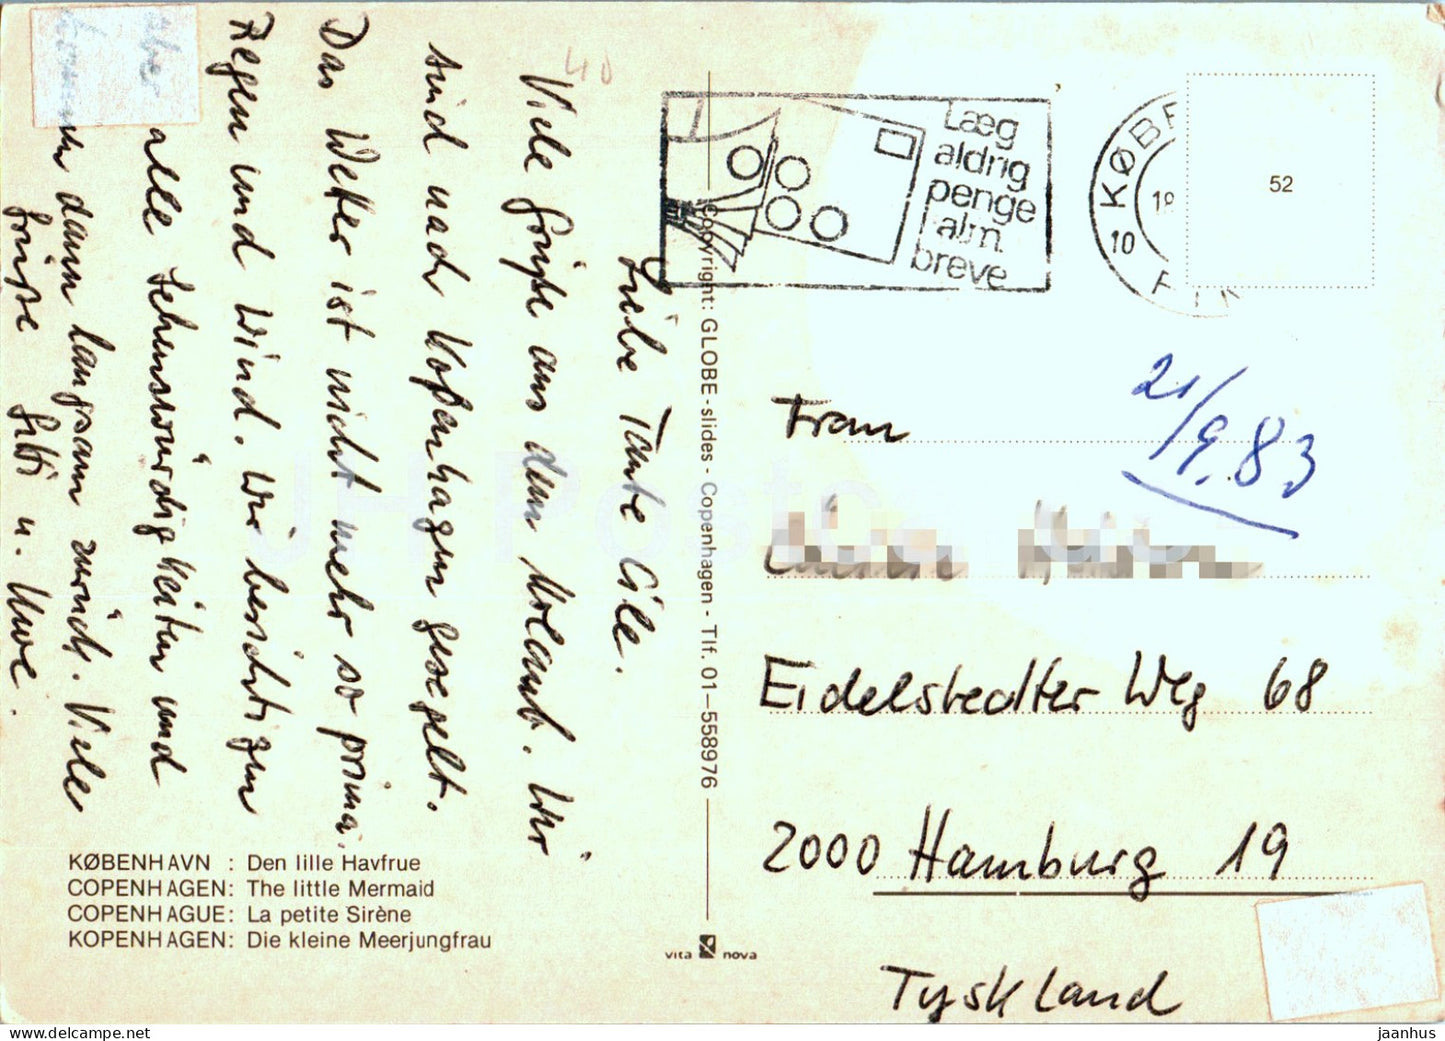 Liebe Tante Cile.
Viele Grüße aus dem Urlaub. Wir
sind nach Kopenhagen gesegelt.
Das Wetter ist nicht mehr so prima.
Regen und Wind. Wir besichtigen
alle Sehenswürdigkeiten und
dann langsam zurück. Viele
Grüße Gitti u. Uwe.
40
Læg
aldrig
penge
i alm.
breve
KØB
10
52
21/9.83
Frau
Eidelstedter Weg 68
2000 Hamburg 19
Tyskland
Copyright: GLOBE-slides - Copenhagen - Tlf. 01-558976
KØBENHAVN : Den lille Havfrue
COPENHAGEN: The little Mermaid
COPENHAGUE: La petite Sirène
KOPENHAGEN: Die kleine Meerjungfrau
vita nova
JH Postcards
www.delcampe.net
jaanhus